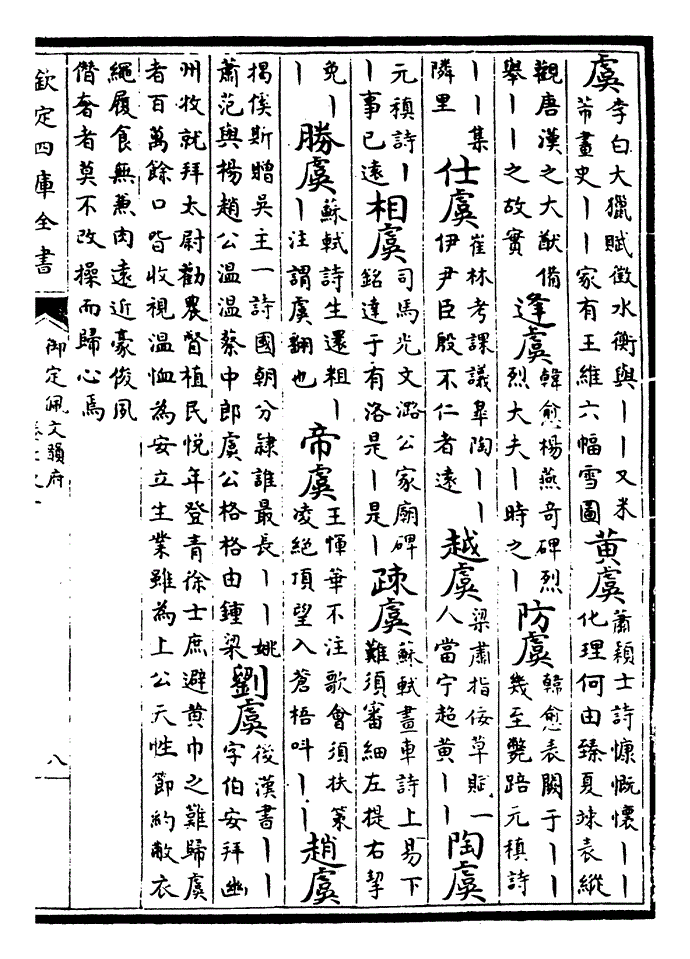 虞 李白大獵賦徵水衡與丨丨又米芾畫史丨丨家有王維六幅雪圖 黃虞 蕭穎士詩慷慨懷丨丨化理何由臻夏竦表縱
觀唐漢之大猷備舉丨丨之故實 逢虞 韓愈楊燕奇碑烈烈大夫丨時之丨 防虞 韓愈表闕于丨丨幾至斃踣元稹詩
丨丨集隣里 仕虞 崔林考課議臯陶丨丨伊尹臣殷不仁者遠 越虞 梁肅指佞草賦一人當宁超黃丨丨 陶虞
元稹詩丨丨事已遠 相虞 司馬光文潞公家廟碑銘達于有洛是丨是丨 疎虞 蘇軾畫車詩上易下難須審細左提右挈
免丨丨 勝虞 蘇軾詩生還粗丨丨注謂虞翻也 帝虞 王惲華不注歌會須扶策凌絕頂望入蒼梧呌丨丨 趙虞
揭傒斯贈吳主一詩國朝分隷誰最長丨丨姚蕭范與楊趙公温温蔡中郎虞公格格由鍾梁 劉虞 後漢書丨丨字伯安拜幽
州牧就拜太尉勸農督植民悅年登青徐士庶避黃巾之難歸虞者百萬餘口皆收視温恤為安立生業雖為上公天性節約敝衣
繩履食無兼肉遠近豪俊夙僭奢者莫不改操而歸心焉
欽定四庫全書
御定佩文韻府
八